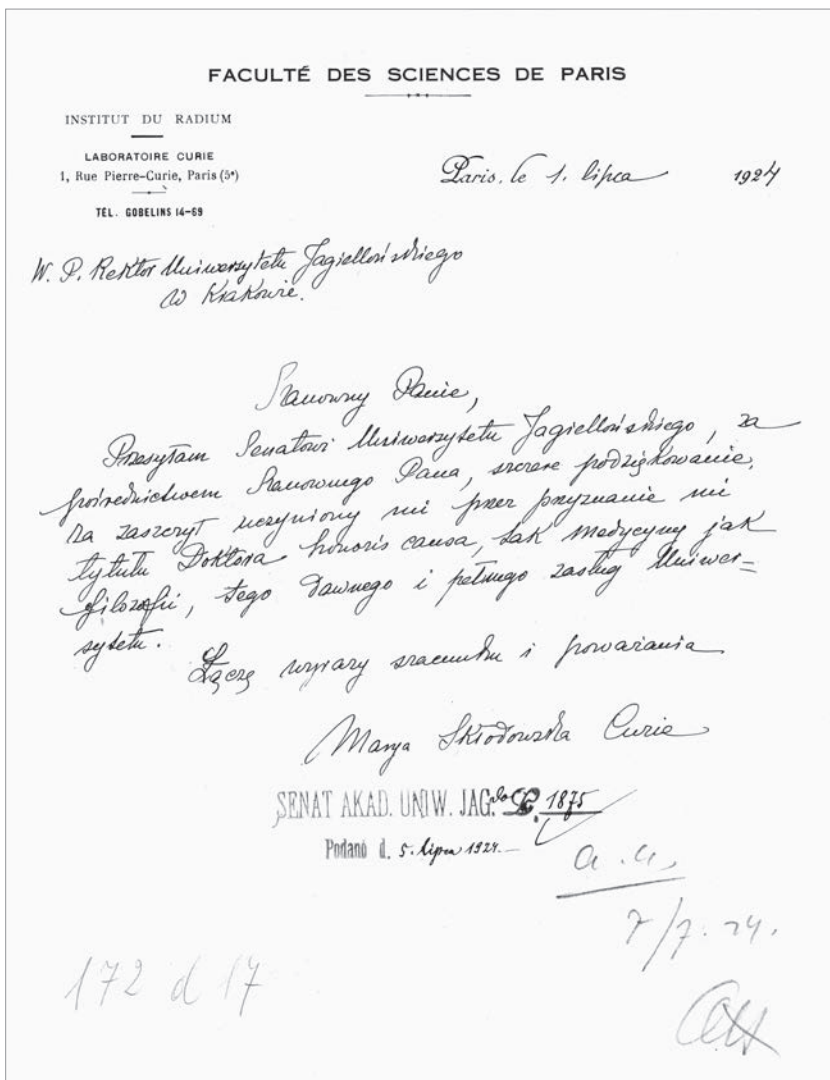 FACULTÉ DES SCIENCES DE PARIS
INSTITUT DU RADIUM
LABORATOIRE CURIE
1, Rue Pierre-Curie, Paris (5e)
TÉL. GOBELINS 14-69
Paris, le 1. lipca 1924
W. P. Rektor Uniwersytetu Jagiellońskiego
w Krakowie.
Szanowny Panie,
Przesyłam Senatowi Uniwersytetu Jagiellońskiego, za
pośrednictwem Szanownego Pana, szczere podziękowanie,
za zaszczyt uczyniony mi przez przyznanie mi
tytułu Doktora honoris causa, tak medycyny jak
filozofii, tego dawnego i pełnego zasług Uniwer=
sytetu.
Łączę wyrazy szacunku i poważania
Marya Skłodowska Curie
SENAT AKAD. UNIW. JAG. do L. 1875
Podano d. 5. lipca 1924.
a. a.
7/7. 24.
172 d 17